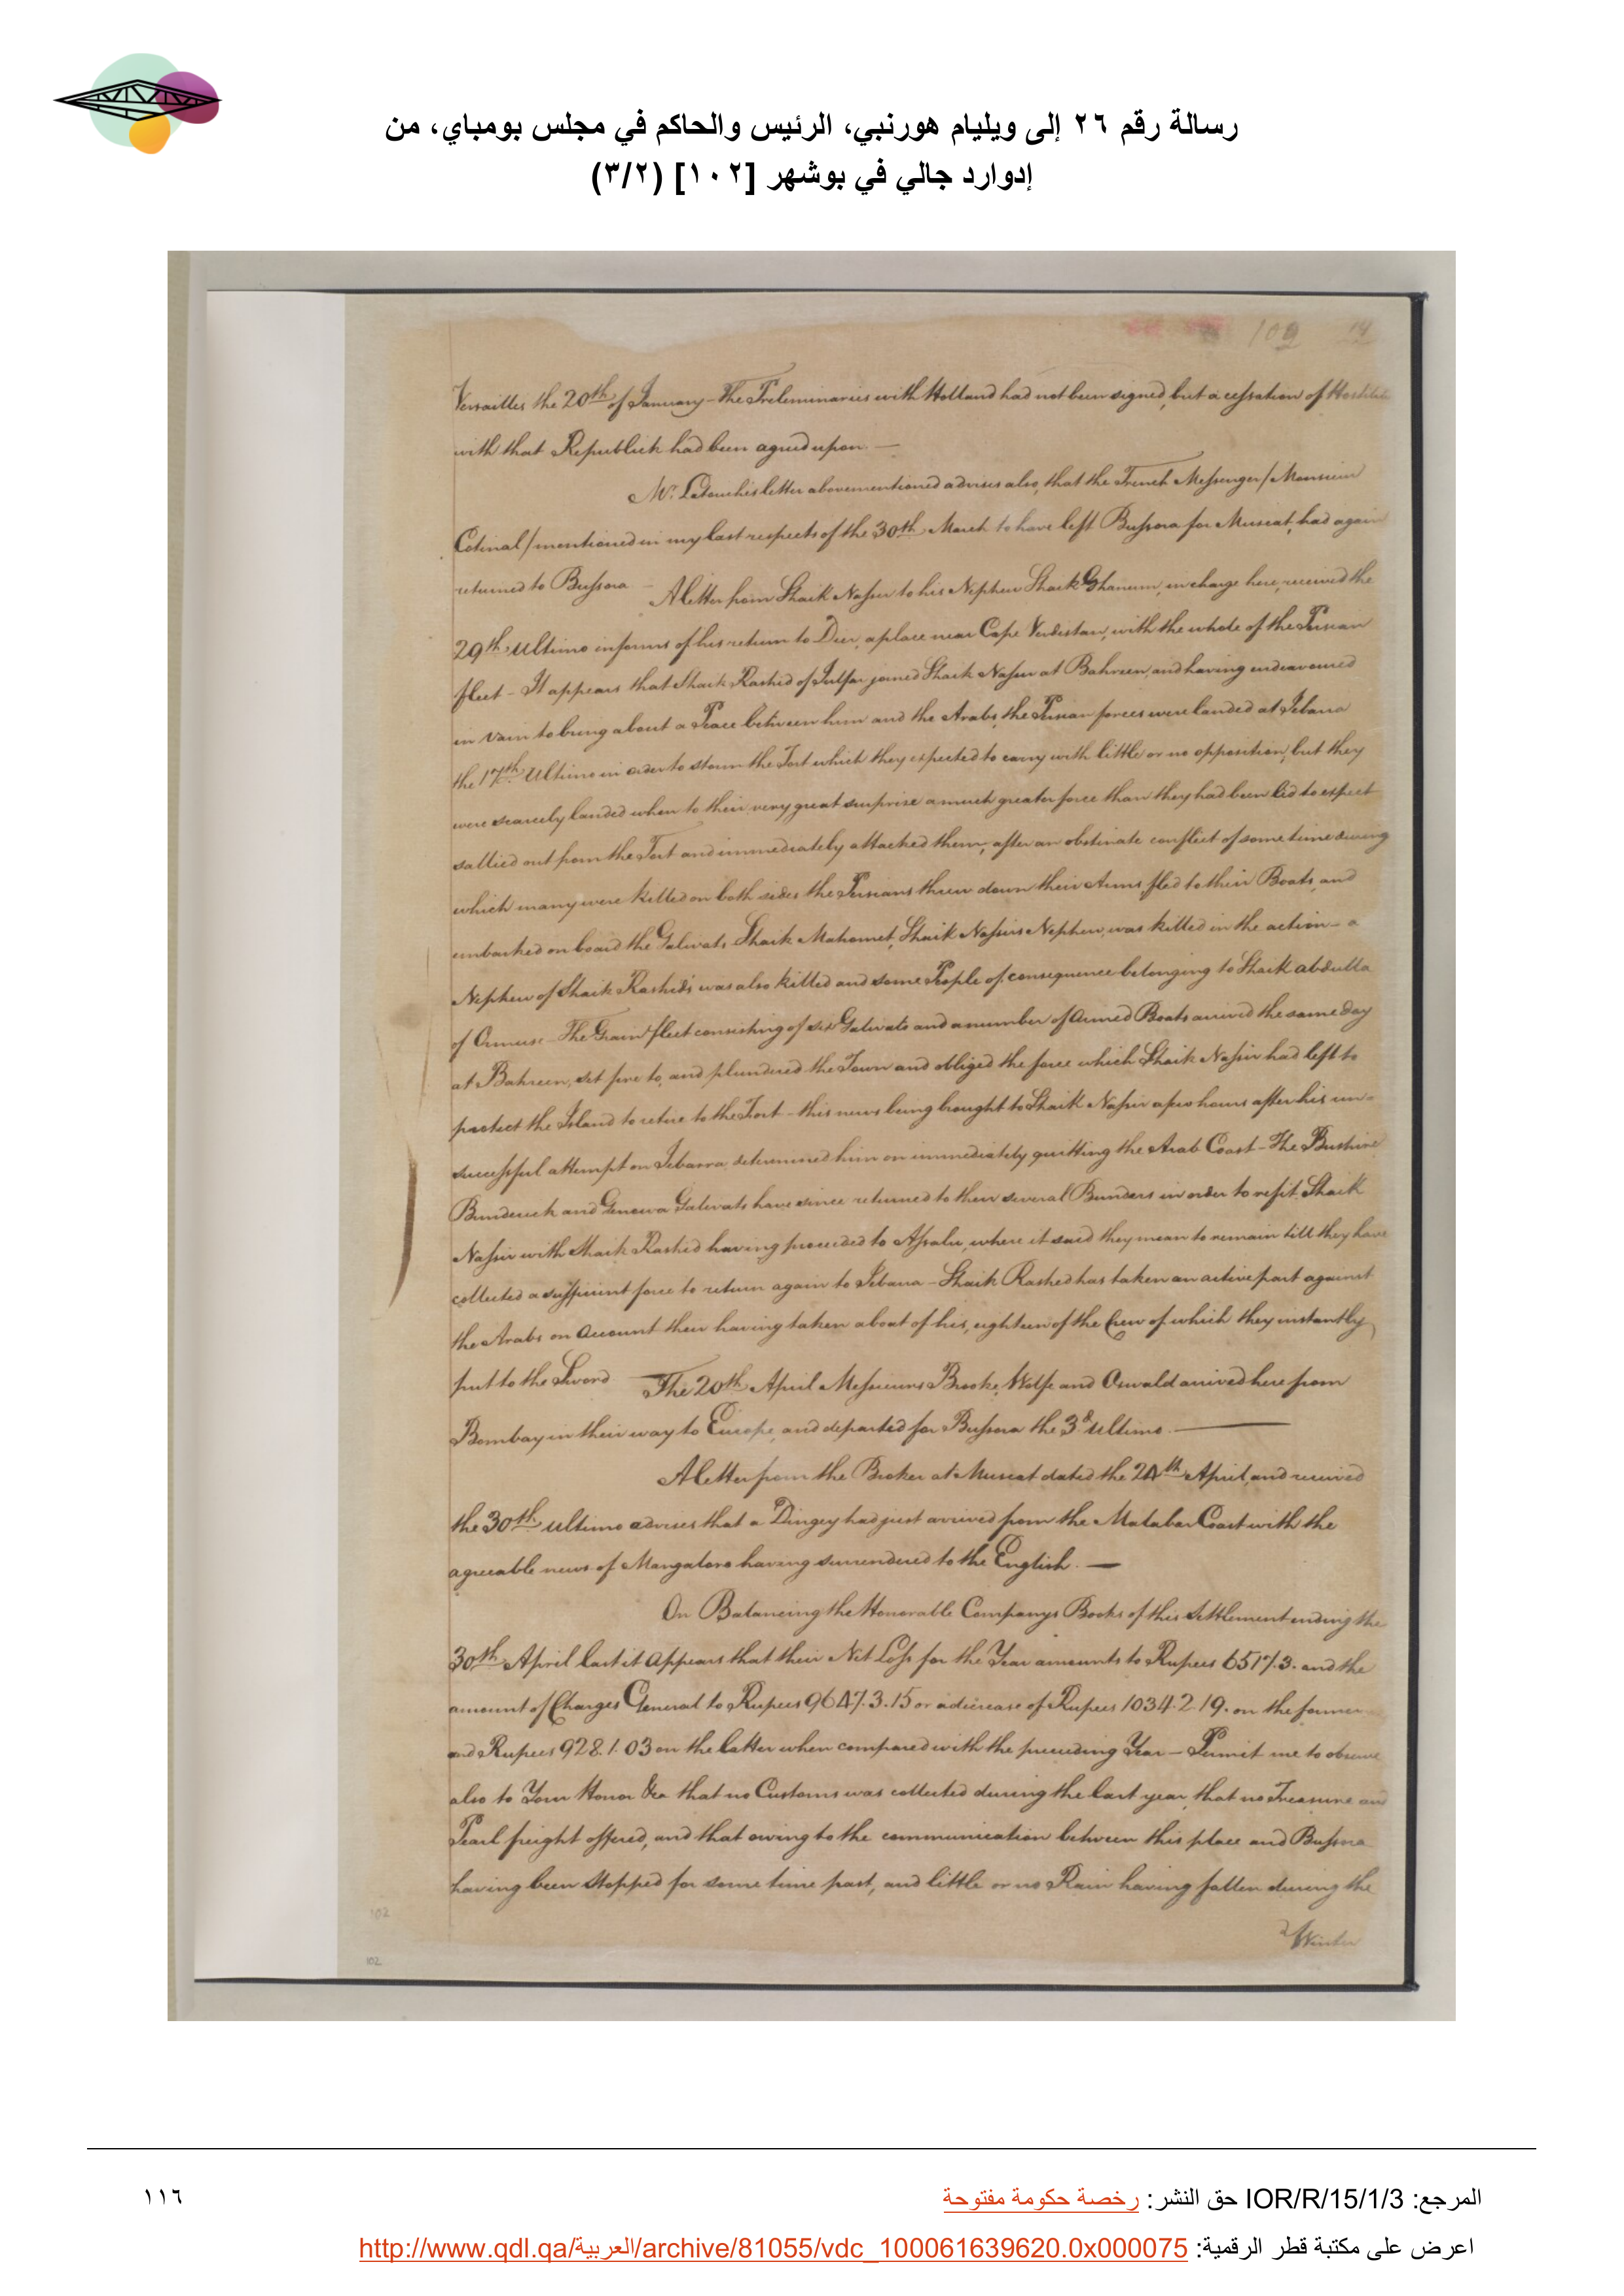 رسالة رقم ٢٦ إلى ويليام هورنبي، الرئيس والحاكم في مجلس بومباي، من
إدوارد جالي في بوشهر [١٠٢] (٣/٢)
102 14
Versailles the 20th of January - The Preleminaries with Holland had not been signed, but a cessation of Hostilit
with that Republick had been agreed upon. —
Mr. Latouche's letter abovementioned advises also, that the French Messenger / Monsieur
Cotinal / mentioned in my last respects of the 30th March to have left Bussora for Muscat, had again
returned to Bussora - A letter from Shaik Nassir to his Nephew Shaik Ghanum, in charge here, received the
29th Ultimo informs of his return to Dier, a place near Cape Verdistan, with the whole of the Persian
fleet - It appears that Shaik Rashid of Julfar joined Shaik Nassir at Bahreen, and having endeavoured
in vain to bring about a Peace between him and the Arabs, the Persian forces were landed at Zebara
the 17th Ultimo in order to storm the Fort which they expected to carry with little or no opposition, but they
were scarcely landed when to their very great surprise a much greater force than they had been led to expect
sallied out from the Fort and immediately attacked them; after an obstinate conflict of some time during
which many were killed on both sides the Persians threw down their Arms, fled to their Boats, and
embarked on board the Galivats. Shaik Mahomet, Shaik Nassirs Nephew, was killed in the action - a
Nephew of Shaik Rashid's was also killed and some People of consequence belonging to Shaik abdulla
of Ormuse - The Grain fleet consisting of six Galivats and a number of Armed Boats arrived the same day
at Bahreen, set fire to, and plundered the Town and obliged the force which Shaik Nassir had left to
protect the Island to retire to the Fort - this news being brought to Shaik Nassir a few hours after his un-
successful attempt on Zebarra, determined him on immediately quitting the Arab Coast - The Bushire
Bunderick and Genowa Galivats have since returned to their several Bunders in order to refit, Shaik
Nassir with Shaik Rashid having proceeded to Assalu, where it said they mean to remain till they have
collected a sufficient force to return again to Zebara - Shaik Rashed has taken an active part against
the Arabs on Account their having taken a boat of his, eighteen of the Crew of which they instantly
put to the Sword The 20th April Messieurs Brooke, Wolfe and Oswald arrived here from
Bombay in their way to Europe, and departed for Bussora the 3d Ultimo. —
A letter from the Broker at Muscat dated the 24th April, and received
the 30th ultimo advises that a Dingey had just arrived from the Malabar Coast with the
agreeable news of Mangalore having surrendered to the English. —
On Balancing the Honorable Companys Books of this Settlement ending the
30th April last it appears that their Net Loss for the Year amounts to Rupees 6517.3. and the
amount of Charges General to Rupees 9647.3.15 or a decrease of Rupees 1034.2.19. on the former
and Rupees 928.1.03 on the latter when compared with the preceeding Year - Permit me to observe
also to Your Honor &ca that no Customs was collected during the last year, that no Treasure and
Pearl freight offered, and that owing to the communication between this place and Bussora
having been stopped for some time past, and little or no Rain having fallen during the
Winter
102
102
المرجع: IOR/R/15/1/3 حق النشر: رخصة حكومة مفتوحة
١١٦
اعرض على مكتبة قطر الرقمية: http://www.qdl.qa/العربية/archive/81055/vdc_100061639620.0x000075